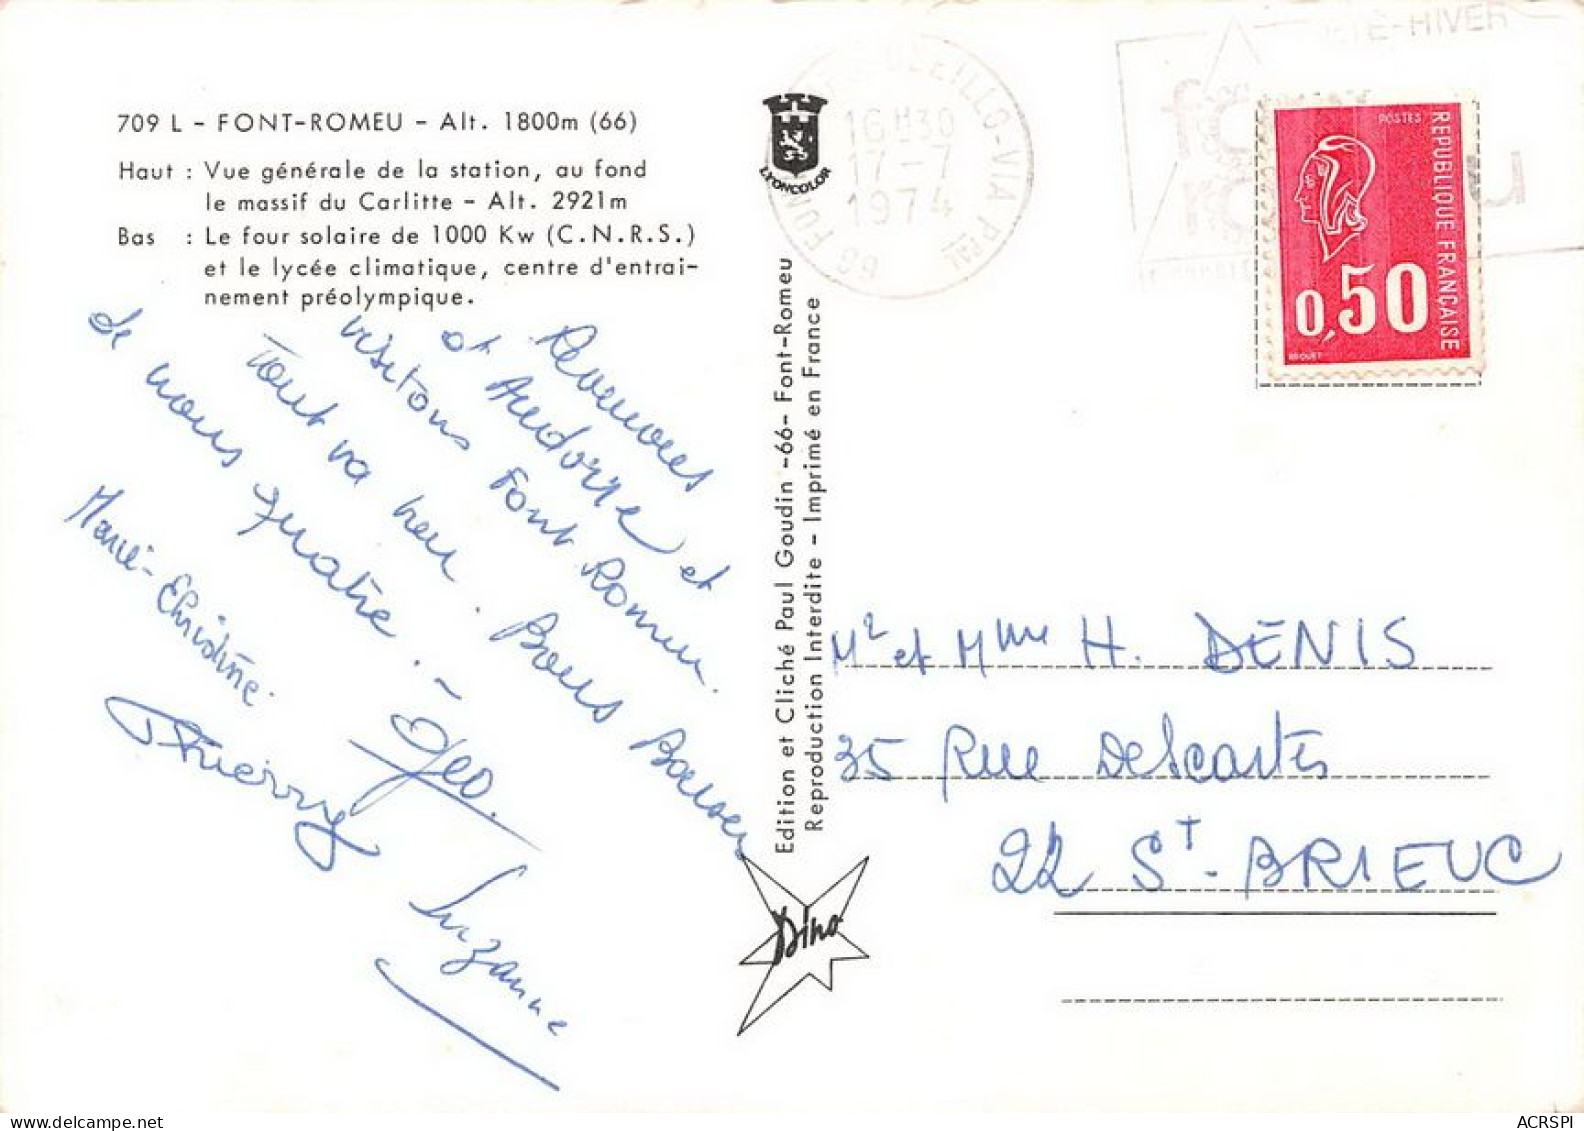 709 L - FONT-ROMEU - Alt. 1800m (66)
Haut : Vue générale de la station, au fond
le massif du Carlitte - Alt. 2921m
Bas : Le four solaire de 1000 Kw (C.N.R.S.)
et le lycée climatique, centre d'entrai-
nement préolympique.
et Andorre et
visitons Font Romeu.
Tout va bien. Bons Baisers
de nous quatre. -
Géo.
Marie-Christine.
Thierry
Suzanne
LYONCOLOR
Edition et Cliché Paul Goudin -66- Font-Romeu
Reproduction Interdite - Imprimé en France
Dino
16H30
17-7
1974
ÉTÉ-HIVER
POSTES
REPUBLIQUE FRANÇAISE
0,50
BEQUET
Mr et Mme H. DENIS
35 Rue Descartes
22 St-BRIEUC
ACRSPI